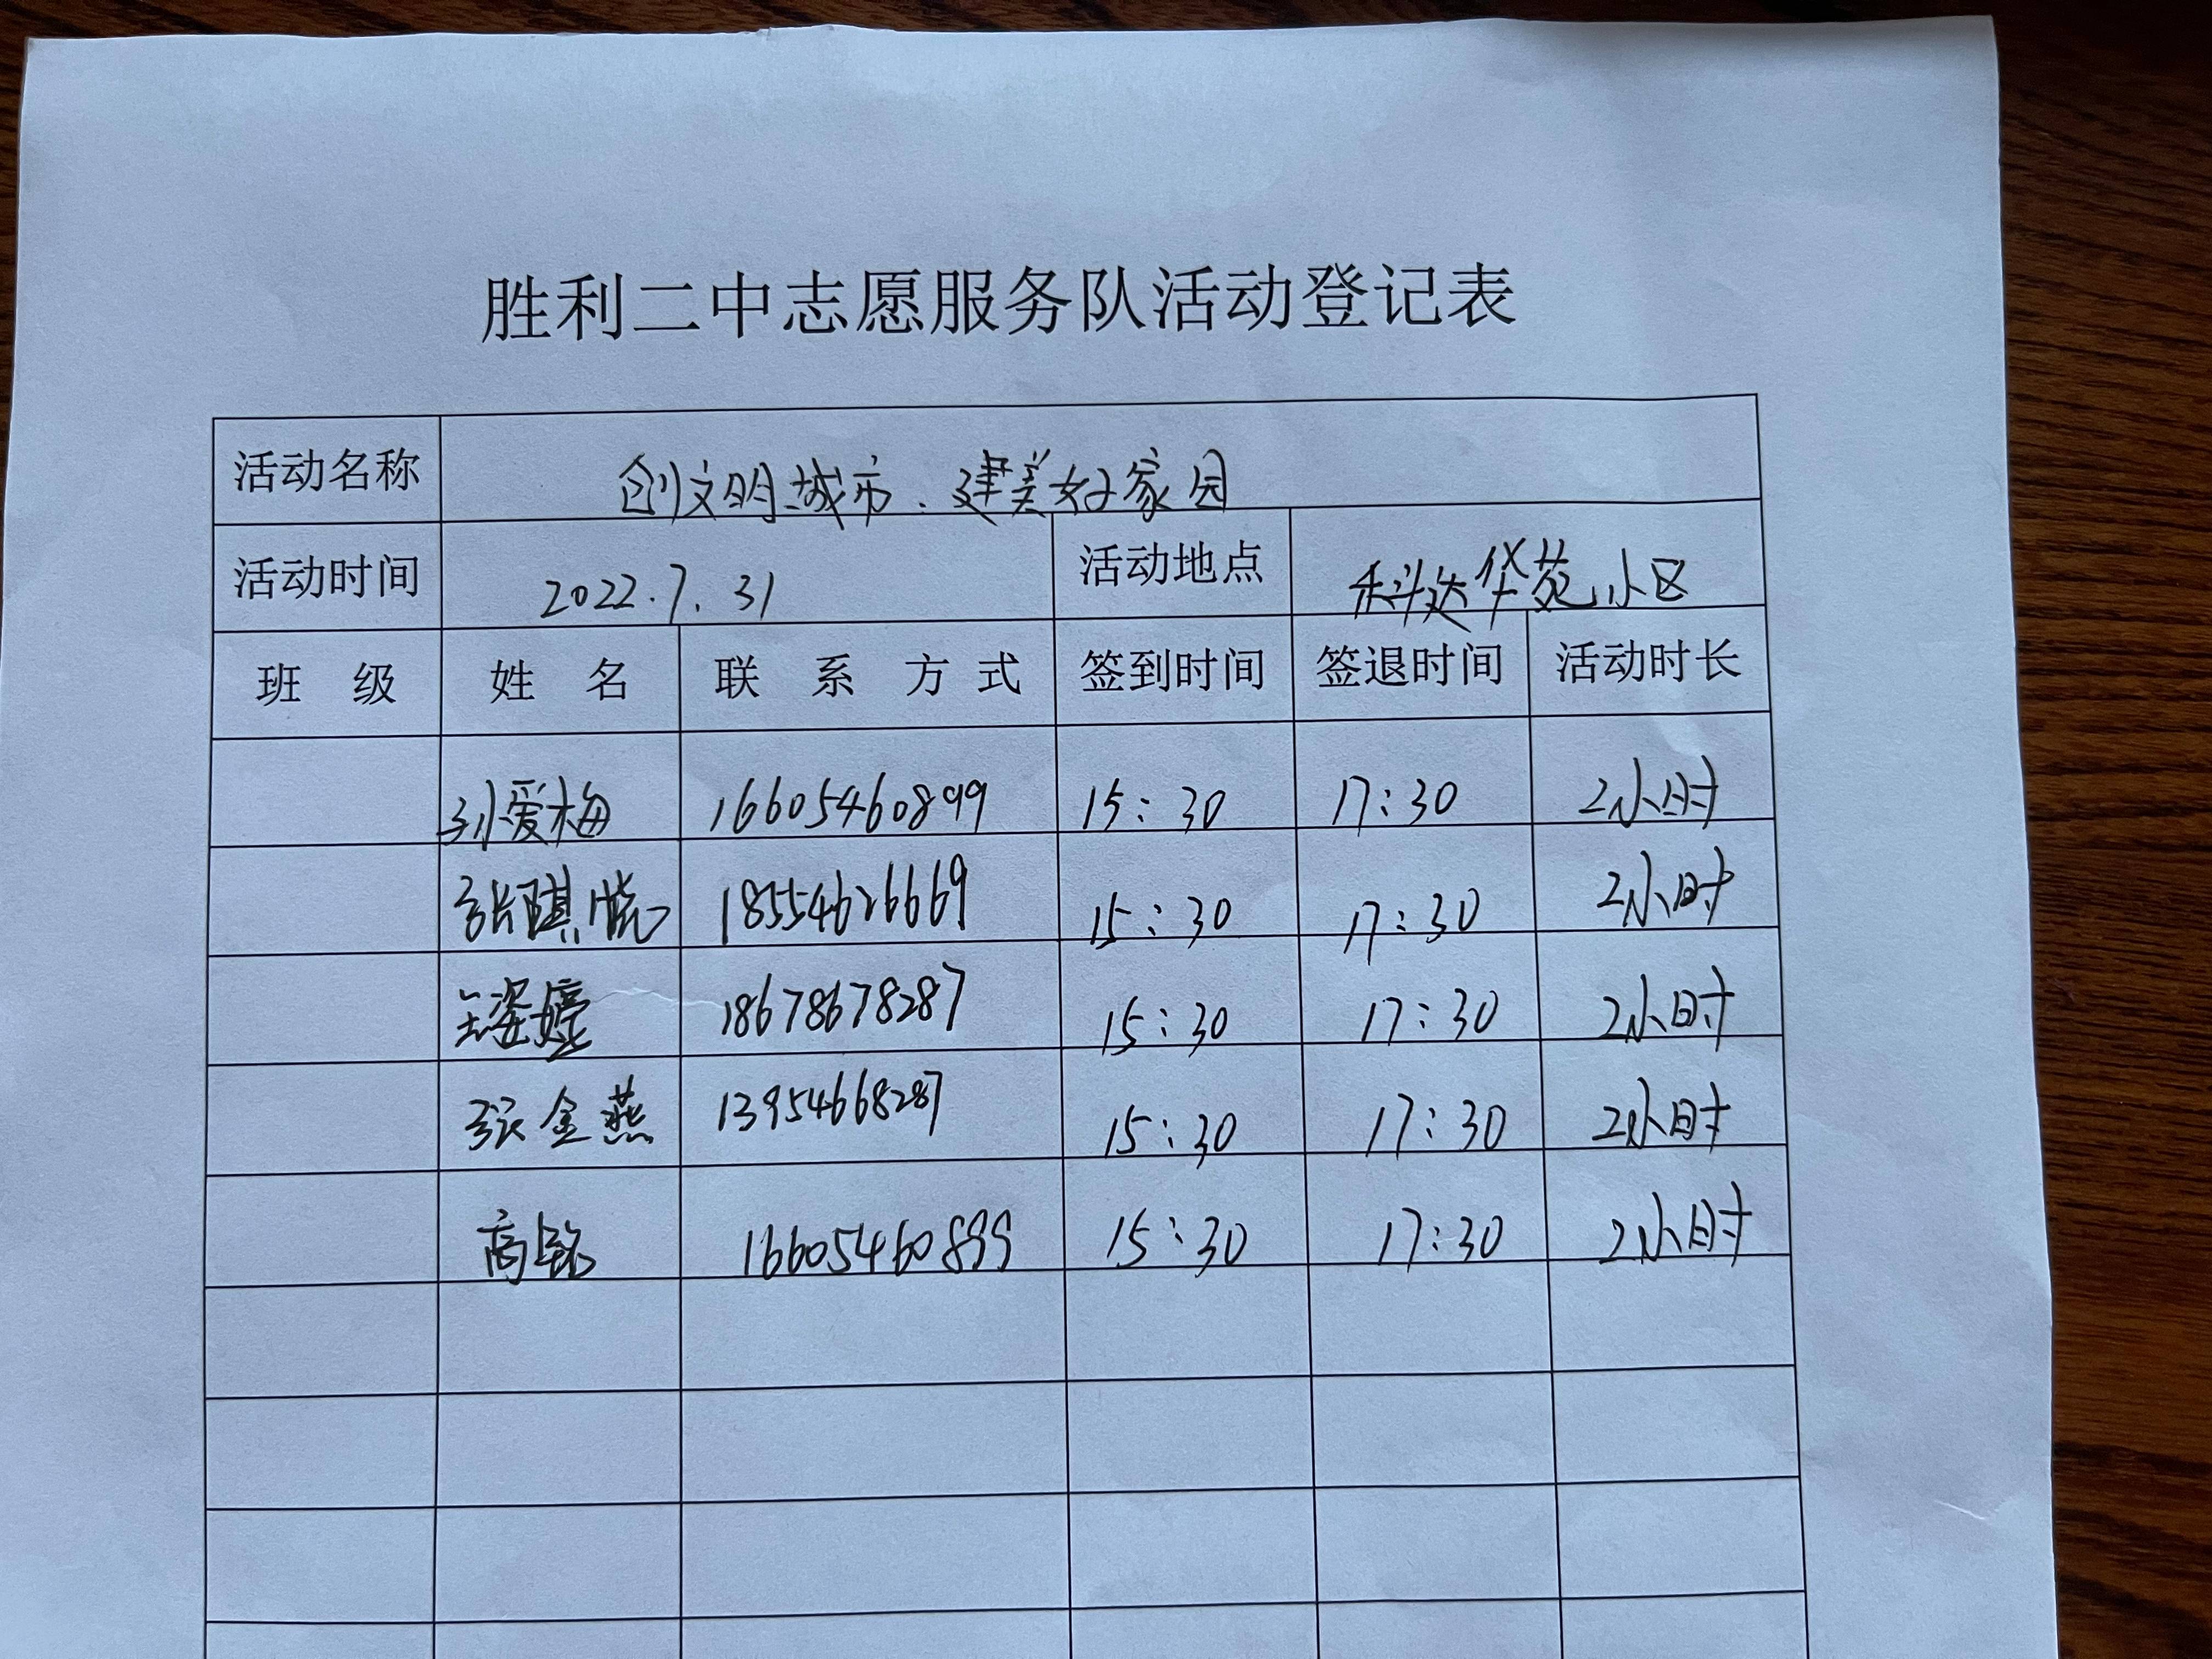 胜利二中志愿服务队活动登记表
活动名称 创文明城市.建美好家园
活动时间 2022.7.31 活动地点 科达华苑小区
班 级 姓 名 联 系 方 式 签到时间 签退时间 活动时长
孙爱梅 16605460899 15:30 17:30 2小时
张琪悦 18554626669 15:30 17:30 2小时
姿婷 18678678287 15:30 17:30 2小时
张金燕 13954668287 15:30 17:30 2小时
高铭 16605460899 15:30 17:30 2小时